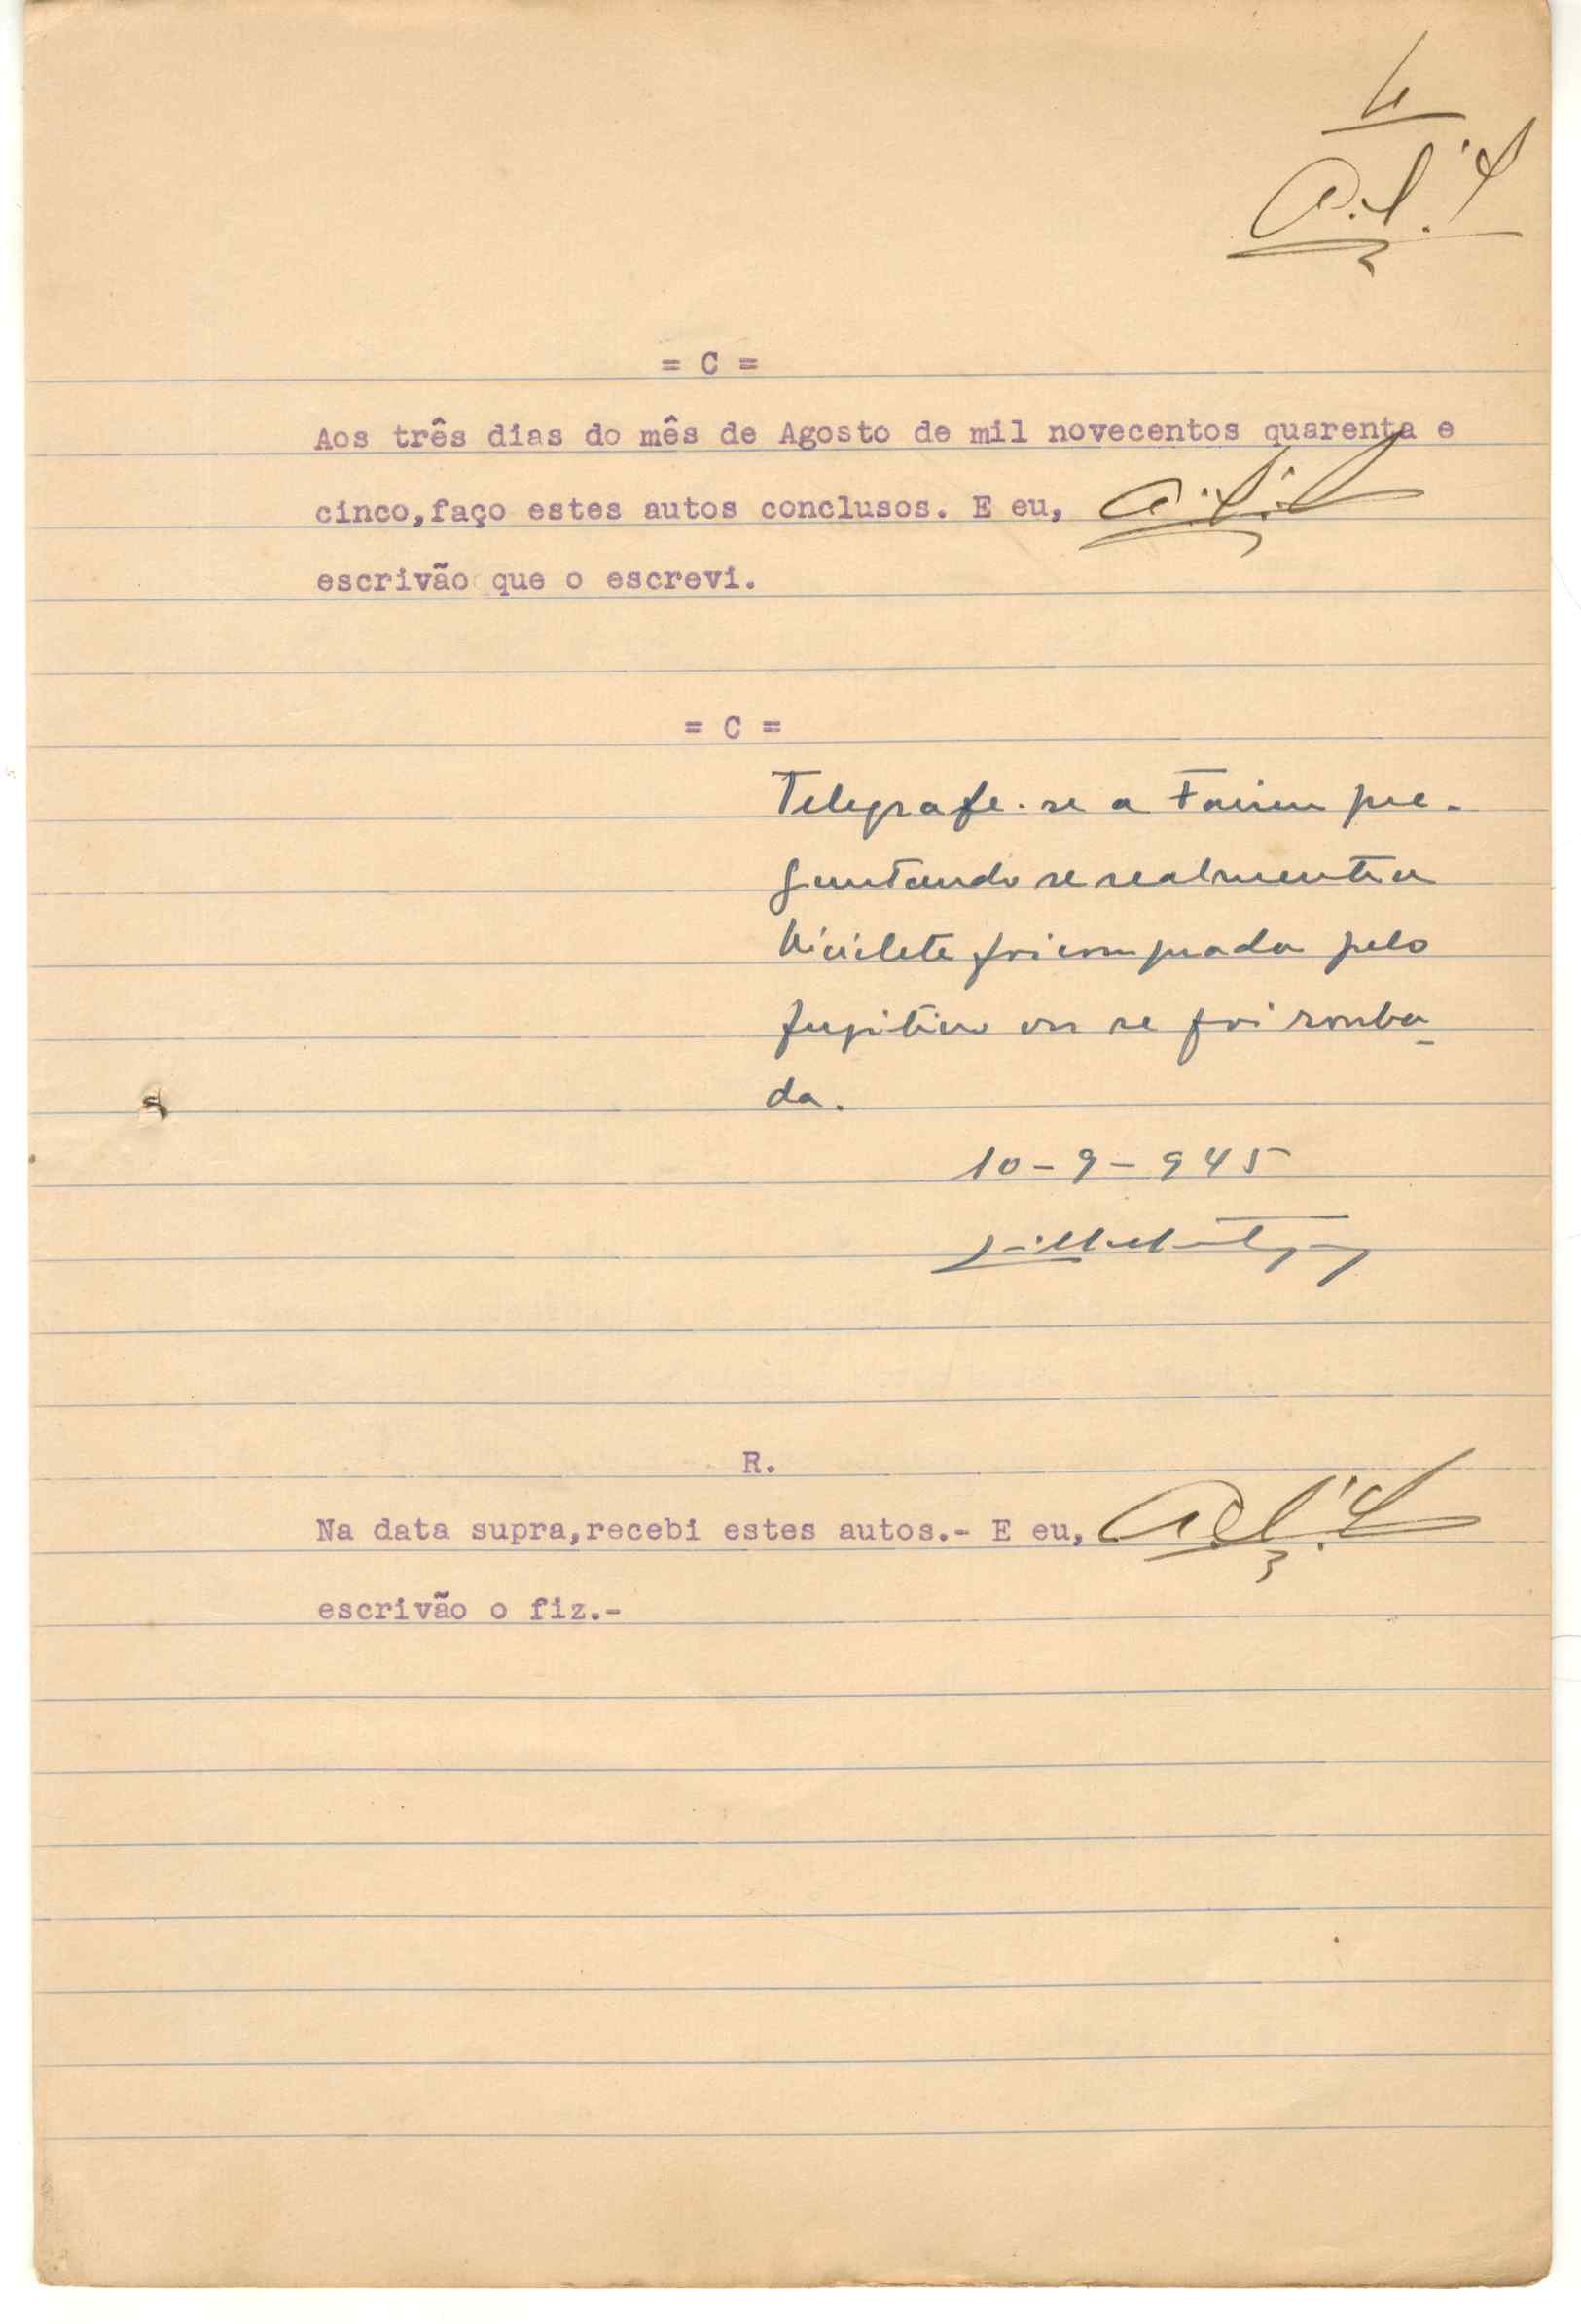 = C =
Aos três dias do mês de Agosto de mil novecentos quarenta e
cinco,faço estes autos conclusos. E eu,
escrivão que o escrevi.
= C =
Telegrafe-se a Farim pre-
guntando se realmente a
biciclete foi comprada pelo
fugitivo ou se foi rouba-
da.
10-9-945
R.
Na data supra,recebi estes autos.- E eu,
escrivão o fiz.-